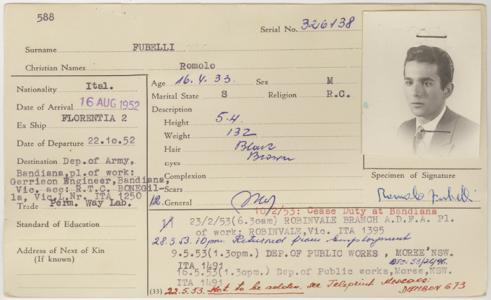 588
Serial No. 326138
Surname FUBELLI
Christian Names Romolo
Nationality Ital.
Age 16.4.33 Sex M
Date of Arrival 16 AUG 1952
Marital State S Religion R.C.
Ex Ship FLORENTIA 2
Description
Height 5.4
Date of Departure 22.10.52
Weight 132
Destination Dep.of Army,
Bandiana,pl.of work:
Garrison Engineer,Bandiana,
Vic. acc: R.T.C. BONEGIL-
la, Vic. L.Nr. ITA 1250
Hair Black
Eyes Brown
Complexion
Scars
Trade Perm. Way Lab.
General
Specimen of Signature
Romolo Fubelli
Standard of Education
Address of Next of Kin
(If known)
10/2/53: Cease Duty at Bandiana
23/2/53(6.30am) ROBINVALE BRANCH A.D.F.A. Pl.
of work: ROBINVALE,Vic. ITA 1395
28.3.53.10pm. Returned from Employment
9.5.53(1.30pm.) DEP.OF PUBLIC WORKS , MOREE NSW.
ITA 1491
16.5.53(1.30pm.) Dep.of Public works,Moree,NSW.
ITA 1491
(33) 22.5.53. Not to be see Teleprint
673